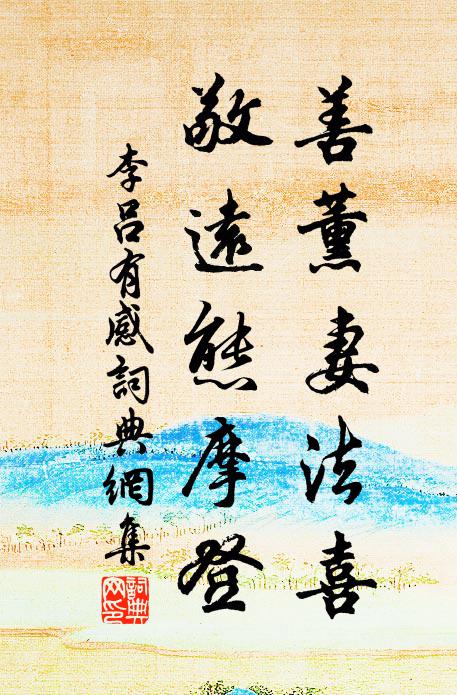 善薰妻法喜
敬遠熊摩登
李呂有感詞典網集
詞典